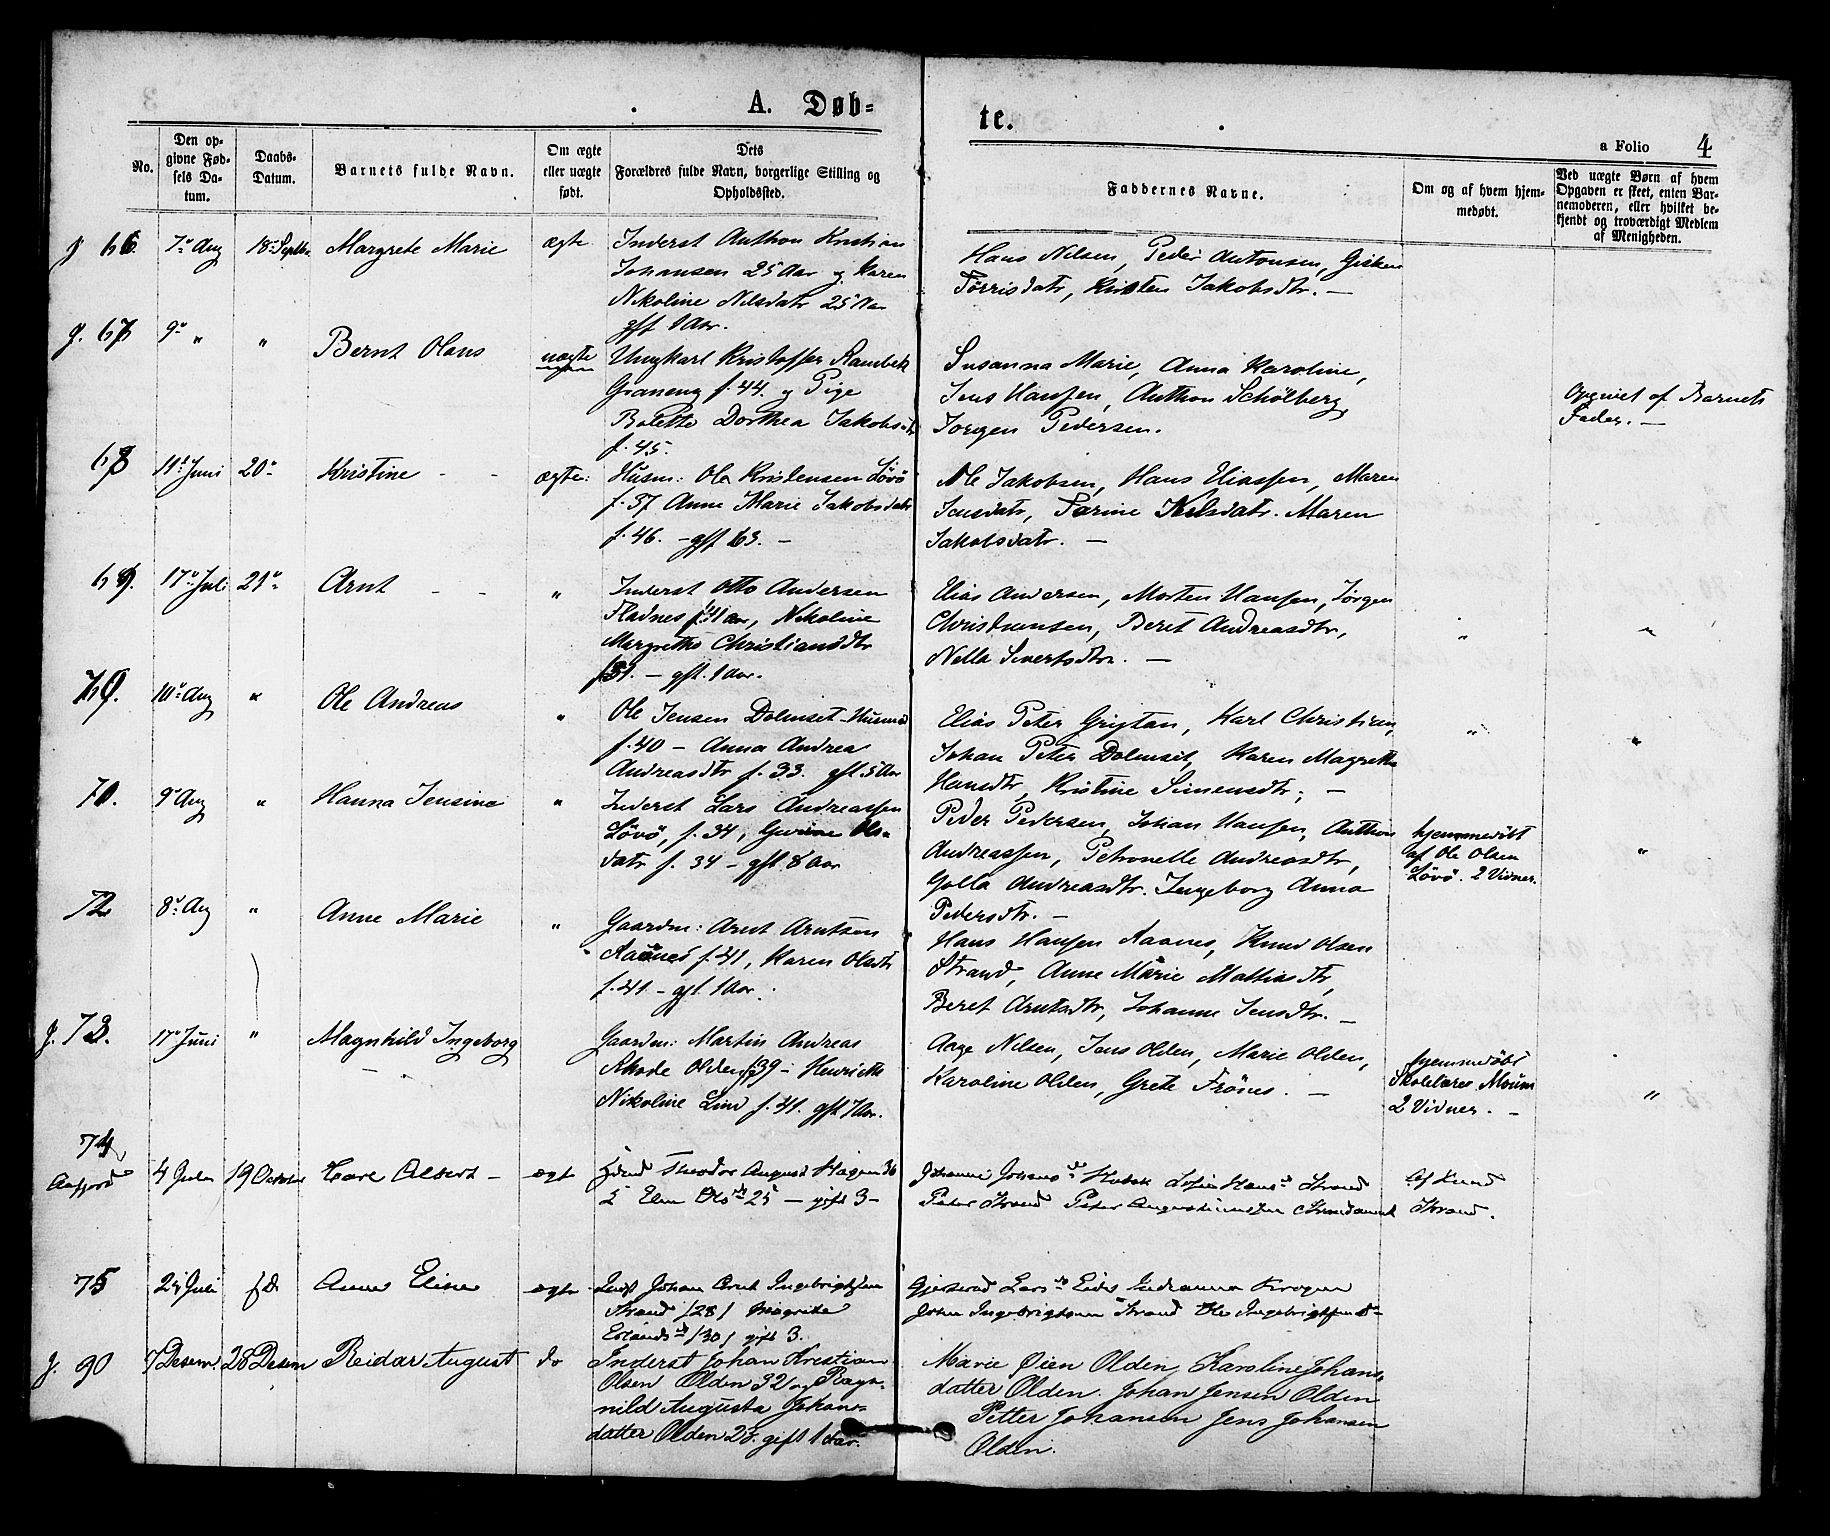 A. Døb=
te.
a Folio 4
No.
Den op-
givne Fød-
sels Da-
tum.
Daabs-
Datum.
Barnets fulde Navn.
Om ægte
eller uægte
født.
Dets
Forældres fulde Navn, borgerlige Stilling og
Opholdssted.
Faddernes Navne.
Om og af hvem hjem-
medøbt.
Ved uægte Børn af hvem
Opgaven er skeet, enten Bar-
nemoderen, eller hvilket be-
kjendt og troværdigt Medlem
af Menigheden.
66. 7de Aug 18 Septbr Margrete Marie ægte
Inderst Anthon Kristian
Johansen 25 Aar og Karen
Nikoline Nilsdatr 25 Aar
gift 1 Aar.
Hans Nilsen, Peder Antonsen, Gisken
Tørrisdatr, Kristen Jakobsdtr. —
g. 67 9de " " Bernt Olaus uægte
Ungkarl Kristoffer Rambek
Graneng f. 44. og Pige
Bolette Dorthea Jakobsdtr
f. 45.
Susanna Marie, Anna Karoline,
Jens Hansen, Anthon Schölberg,
Jørgen Pedersen.
Opgivet af Barnets
Fader. —
68 11te Juni 20de Kristine - - ægte:
Husm: Ole Kristensen Lövö
f. 37 Anne Marie Jakobsdatr
f. 46. - gift 63. -
Ole Jakobsen, Hans Eliassen, Maren
Jensdatr, Karine Nilsdatr. Maren
Jakobsdatr. —
69. 17de Juli 21de Arnt - - "
Inderst Otto Andersen
Fladnes f. 41, Nikoline
Margrethe Christiansdtr
f. 31. - gift. 1 Aar.
Elias Andersen, Morten Hansen, Jørgen
Christiansen, Beret Andreasdtr,
Nella Sivertsdtr. — " "
70. 10de Aug " Ole Andreas "
Ole Jensen Dolmset - Husmd
f. 40 - Anna Andrea
Andreasdtr f. 33. gift 5 Aar
Elias Peter Grigtan, Karl Christian,
Johan Peter Dolmset, Karen Magrete
Hansdtr, Kristine Simensdtr; — " "
71. 9de Aug " Hanna Jensine "
Inderst Lars Andreassen
Lövö, f. 34, Gurine Ols-
datr f. 34 - gift 8 Aar
Peder Pedersen, Johan Hansen, Anthon
Andreassen, Petronelle Andreasdtr,
Golla Andreasdtr. Ingeborg Anna
Pedersdtr. —
hjemmedöbt
af Ole Olsen
Lövö. 2 Vidner. "
72 8de Aug " Anne Marie "
Gaardm: Arnt Arntsen
Raanes f. 41, Karen Olsdtr
f. 41 - gift 1 Aar.
Hans Hansen Raanes, Knud Olsen
Strand, Anne Marie Mathiasdtr,
Beret Arntsdtr, Johanne Jensdtr. —
g. 73. 17de Juni " Magnhild Ingeborg
Gaardm: Martin Andreas
Rhode Olden f. 39 - Henriette
Nikoline Lind f. 41. gift 7 Aar.
Aage Nilsen, Jens Olden, Marie Olden,
Karoline Olden, Grete Frönes. —
hjemmedöbt
Skolelærer Moum
2 Vidner. — "
74
Aafjord 4 19 October Carl Albert - ægt
Theodor August Hagen 36
Elen Olsdtr 25 - gift 3 -
Johanne Johans Sofie Hans Strand
Peter Strand Peter Augustinussen
Af Knud
Strand.
75 24 Juli s.D. Anne Eline ægte
Johan Arnt Ingebrigtsen
Strand /28/ Magrete
Erlands /30/ gift 3.
Gjertrud Lars Eides Indianna Krogen
John Ingebrigtsen Strand Ole Ingebrigtsen
g. 90 7 Desem. 28 Desem Reidar August do
Inderst Johan Kristian
Olsen Olden 32 og Ragn-
hild Augusta Johans-
datter Olden 28. gift 1 Aar.
Marie Øien Olden, Karoline Johans-
datter Olden. Johan Jensen Olden
Petter Johansen Jens Johansen
Olden.